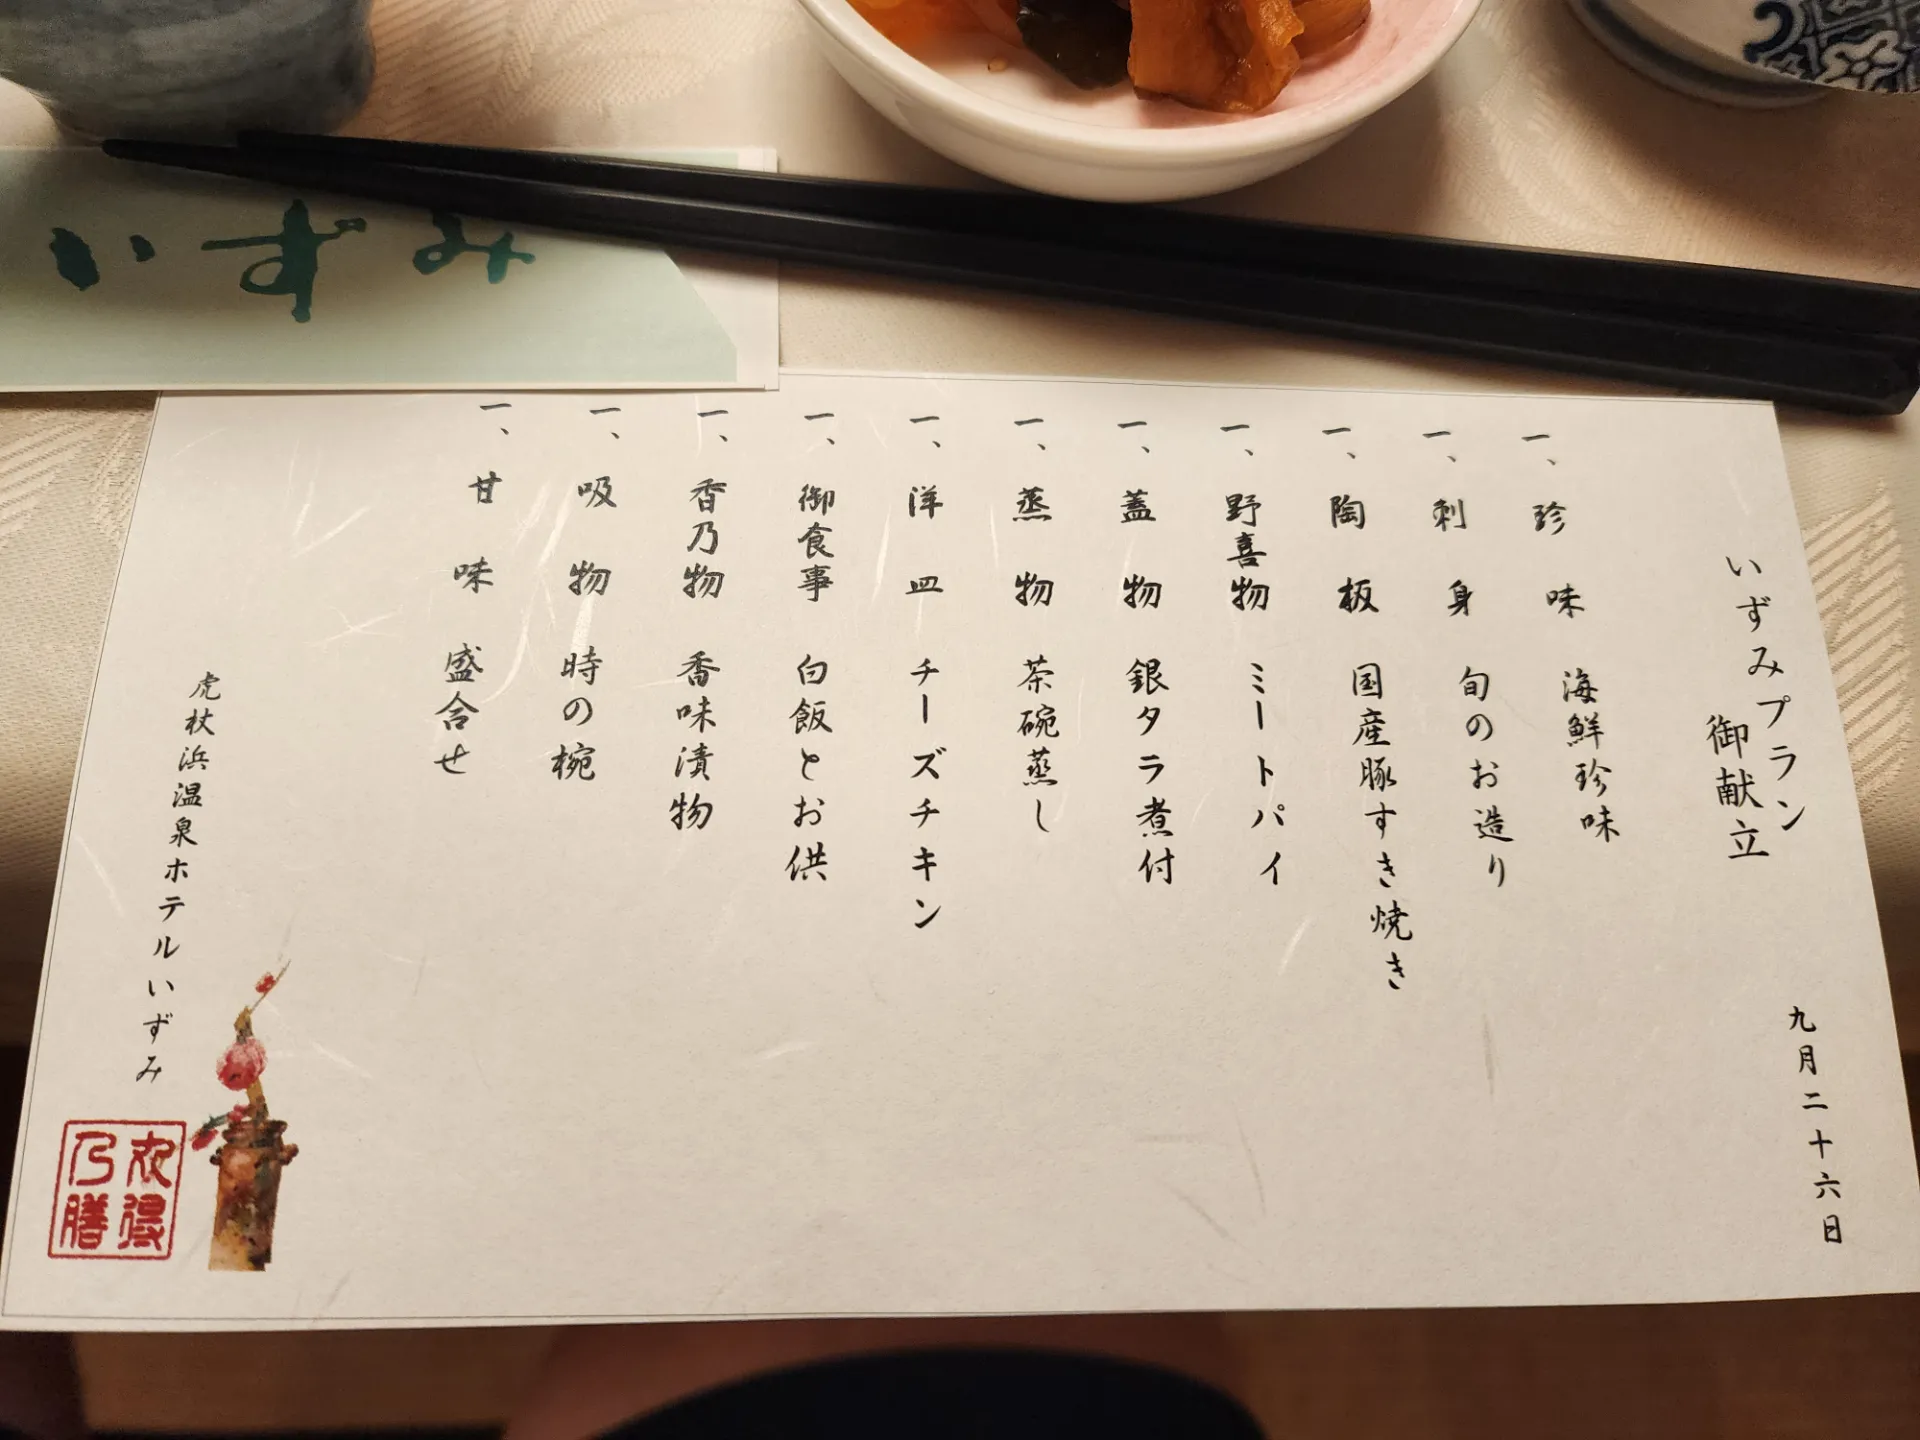 いずみプラン
御献立
九月二十六日
一、珍味 海鮮珍味
一、刺身 旬のお造り
一、陶板 国産豚すき焼き
一、野喜物 ミートパイ
一、蓋物 銀タラ煮付
一、蒸物 茶碗蒸し
一、洋皿 チーズチキン
一、御食事 白飯とお供
一、香乃物 香味漬物
一、吸物 時の椀
一、甘味 盛合せ
虎杖浜温泉ホテルいずみ
いずみ